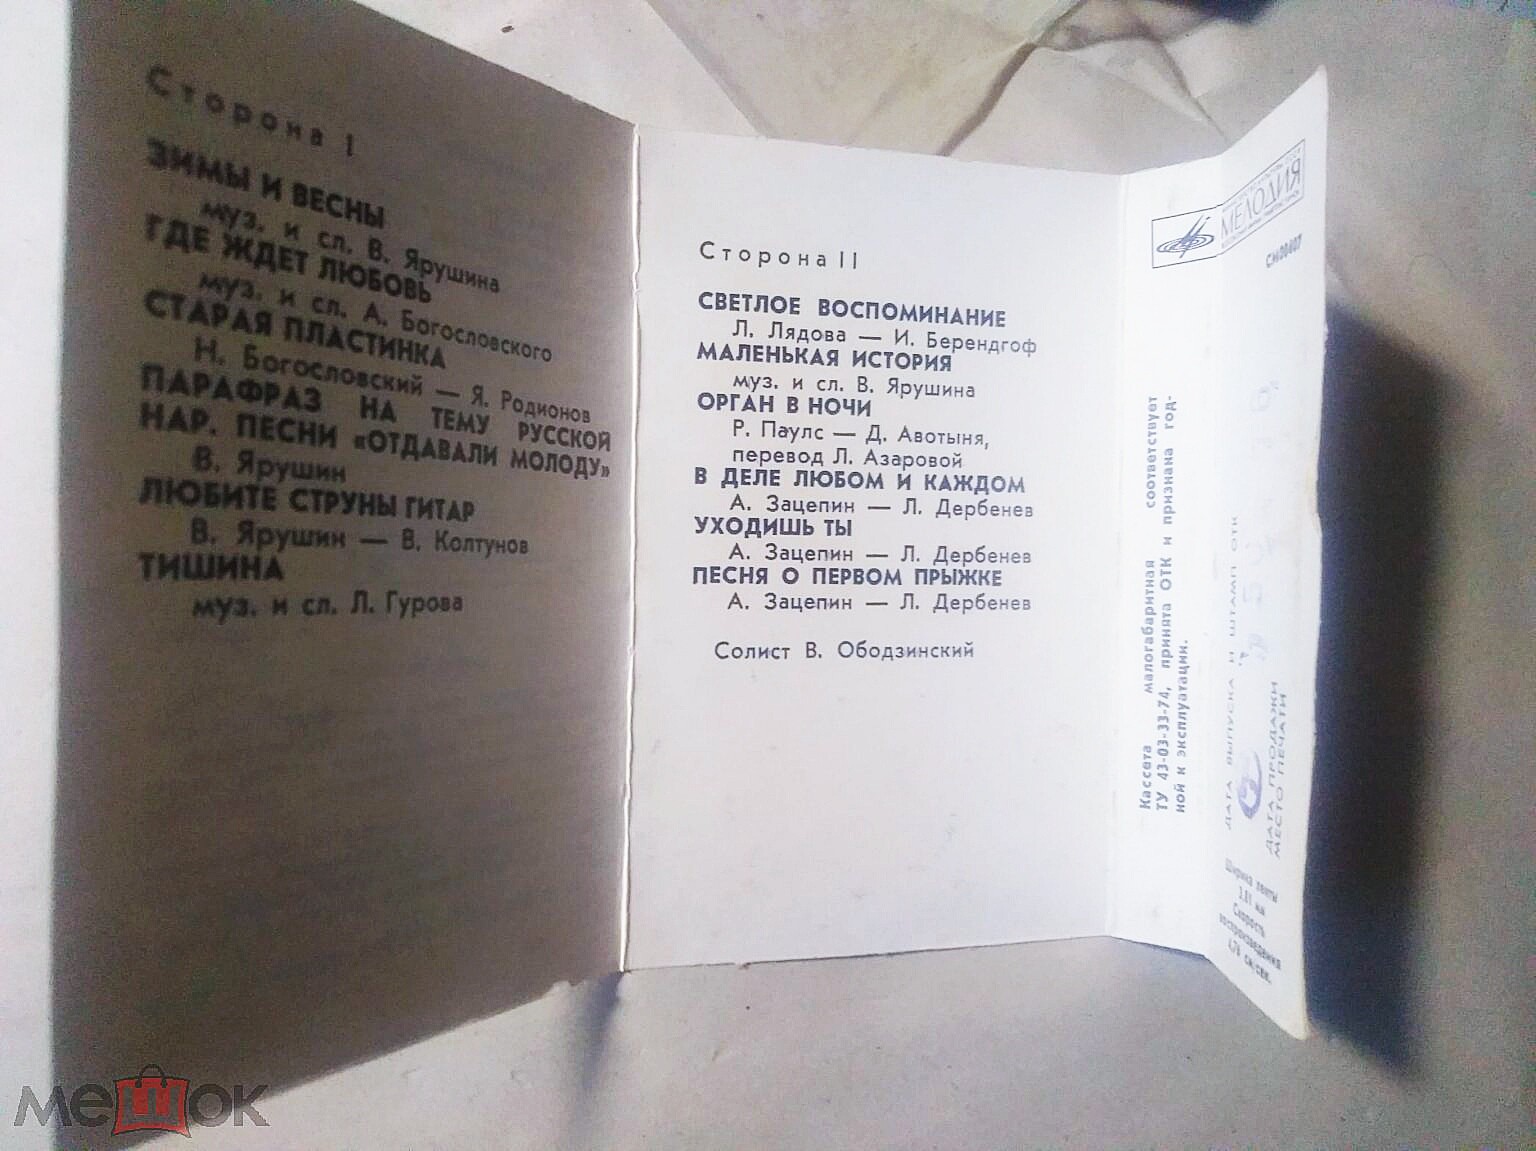 Сторона I
ЗИМЫ И ВЕСНЫ
муз. и сл. В. Ярушина
ГДЕ ЖДЕТ ЛЮБОВЬ
муз. и сл. А. Богословского
СТАРАЯ ПЛАСТИНКА
Н. Богословский — Я. Родионов
ПАРАФРАЗ НА ТЕМУ РУССКОЙ
НАР. ПЕСНИ «ОТДАВАЛИ МОЛОДУ»
В. Ярушин
ЛЮБИТЕ СТРУНЫ ГИТАР
В. Ярушин — В. Колтунов
ТИШИНА
муз. и сл. Л. Гурова
Сторона II
СВЕТЛОЕ ВОСПОМИНАНИЕ
Л. Лядова — И. Берендгоф
МАЛЕНЬКАЯ ИСТОРИЯ
муз. и сл. В. Ярушина
ОРГАН В НОЧИ
Р. Паулс — Д. Авотыня,
перевод Л. Азаровой
В ДЕЛЕ ЛЮБОМ И КАЖДОМ
А. Зацепин — Л. Дербенев
УХОДИШЬ ТЫ
А. Зацепин — Л. Дербенев
ПЕСНЯ О ПЕРВОМ ПРЫЖКЕ
А. Зацепин — Л. Дербенев
Солист В. Ободзинский
Кассета малогабаритная соответствует
ТУ 43-03-33-74, принята ОТК и признана год-
ной к эксплуатации.
МЕЛОДИЯ
СМ00607
ДАТА ВЫПУСКА И ШТАМП ОТК
ДАТА ПРОДАЖИ
МЕСТО ПЕЧАТИ
Ширина ленты
3,81 мм
Скорость
воспроизведения
4,76 см/сек.
мешок